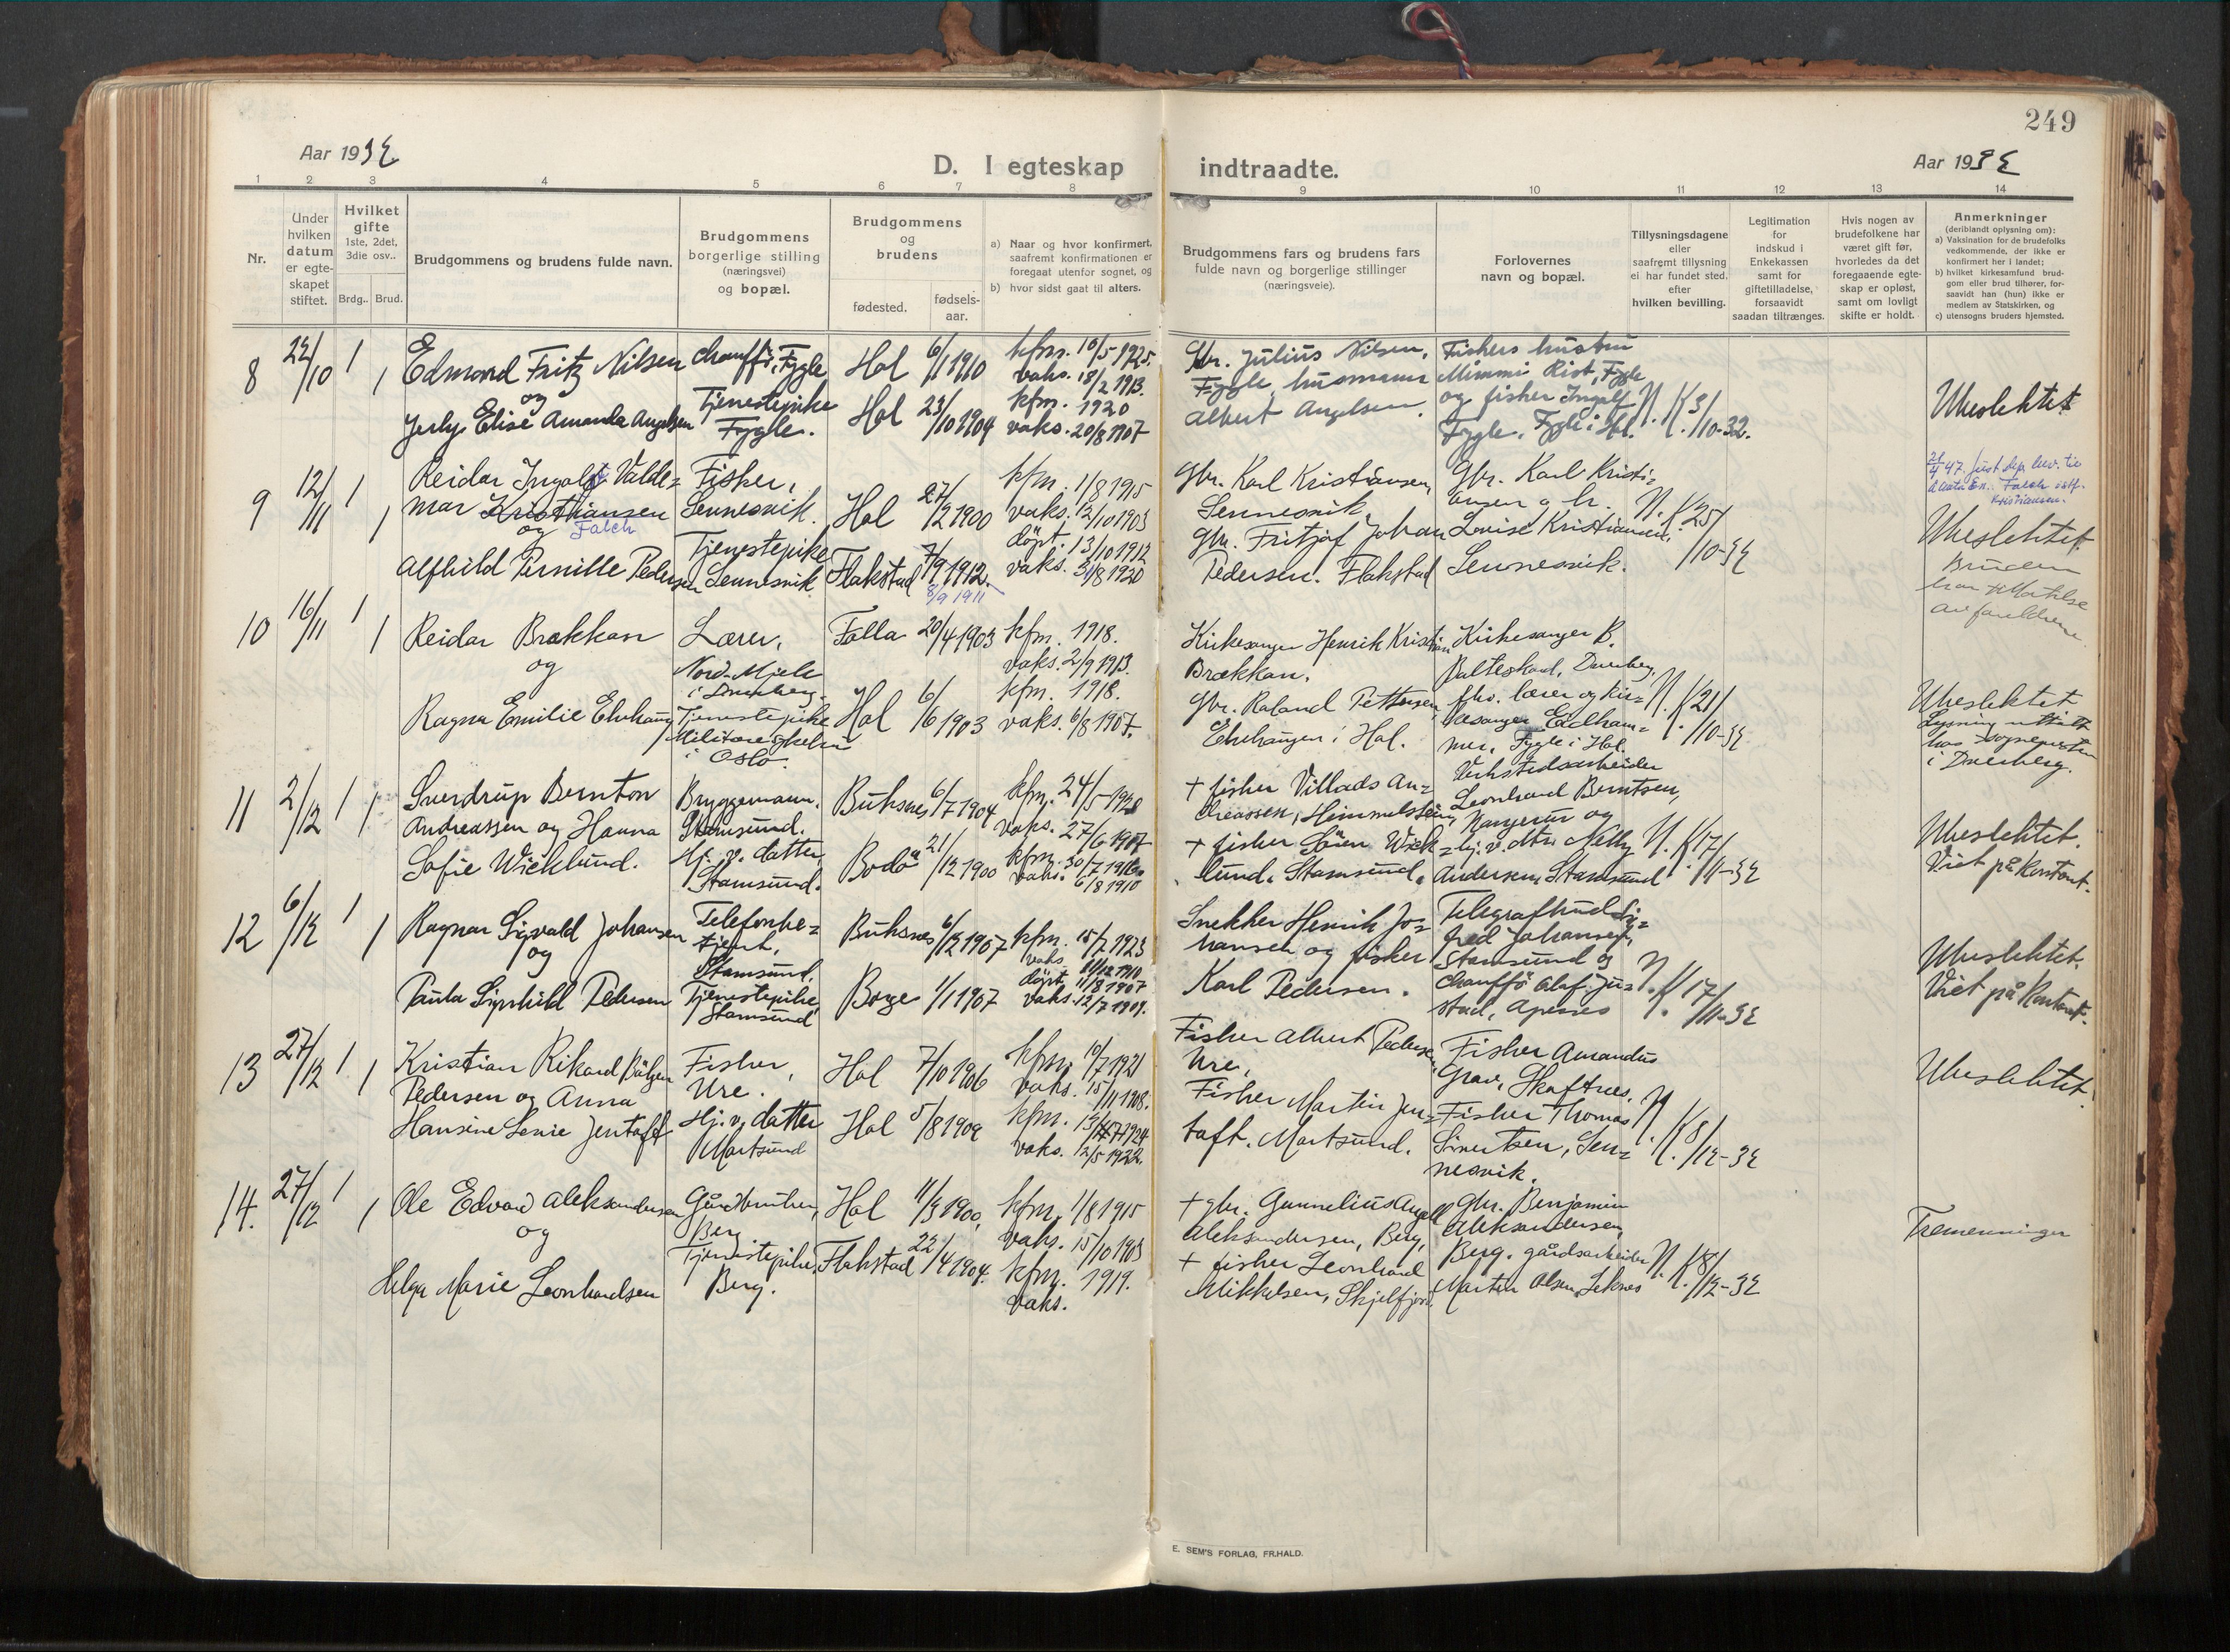 249
Aar 1932
D. I egteskap indtraadte.
Aar 1932
1 2 3 4 5 6 7 8 9 10 11 12 13 14
Nr.
Under
hvilken
datum
er egte-
skapet
stiftet.
Hvilket
gifte
1ste, 2det,
3die osv..
Brdg.. Brud.
Brudgommens og brudens fulde navn.
Brudgommens
borgerlige stilling
(næringsvei)
og bopæl.
Brudgommens
og
brudens
fødested.
fødsels-
aar.
a) Naar og hvor konfirmert,
saafremt konfirmationen er
foregaat utenfor sognet, og
b) hvor sidst gaat til alters.
Brudgommens fars og brudens fars
fulde navn og borgerlige stillinger
(næringsveie).
Forlovernes
navn og bopæl.
Tillysningsdagene
eller
saafremt tillysning
ei har fundet sted.
efter
hvilken bevilling.
Legitimation
for
indskud i
Enkekassen
samt for
giftetilladelse,
forsaavidt
saadan tiltrænges.
Hvis nogen av
brudefolkene har
været gift før,
hvorledes da det
foregaaende egte-
skap er opløst,
samt om lovligt
skifte er holdt.
Anmerkninger
(deriblandt oplysning om):
a) Vaksination for de brudefolks
vedkommende, der ikke er
konfirmert her i landet;
b) hvilket kirkesamfund brud-
gom eller brud tilhører, for-
saavidt han (hun) ikke er
medlem av Statskirken, og
c) utensogns bruders hjemsted.
8
22/10
1
1
Edmond Fritz Nilsen
og
Elise Amanda Angelsen
Chauffør, Fygle
Tjenestepike
Fygle.
Hol 6/1 1910
Hol 23/10 1904
kfm. 10/5 1925.
vaks. 18/2 1913.
kfm. 1920
vaks. 20/8 1907
Gbr. Julius Nilsen,
Fygle, husmann
Albert Angelsen.
Fiskers hustru
Mimmi Rist, Fygle
og fisker Ingolf
Fygle, Fygle i Hol.
N. K. 3/10-32.
Ubeslektet
9
12/11
1
1
Reidar Ingolf Valde=
mar Kristiansen
og Falch
Alfhild Pernille Pedersen
Fisker,
Sennesvik.
Tjenestepike
Sennesvik
Hol 27/2 1900
Flakstad 7/9 1912.
8/9 1911
kfm. 1/8 1915
vaks. 12/10 1903
døpt. 13/10 1912
vaks. 31/8 1920
Gbr. Karl Kristiansen,
Sennesvik.
Gbr. Fritjof Johan
Pedersen. Flakstad
Gbr. Karl Kristi=
ansen og hr.
Lovise Kristiansen,
Sennesvik.
N. K. 25/10-32
Ubeslektet.
Bruden
har tillatelse
av foreldrene
10
16/11
1
1
Reidar Brækkan
og
Ragna Emilie
Lærer,
Nord-Mjele
i Dverberg.
Tjenestepike
i Oslo.
Folla 20/4 1903
Hol 6/6 1903
kfm. 1918.
vaks. 2/9 1913.
kfm. 1918.
vaks. 6/8 1907.
Kirkesanger Henrik Kristian
Brækkan.
Gbr. Roland Pettersen
i Hol.
Kirkesanger B.
Balteskard, Dverberg,
fhv. lærer og kir=
kesanger Eidham=
mer, Fygle i Hol.
N. K. 21/10-32
Ubeslektet
Lysning uttatt
hos sognepresten
i Dverberg.
11
2/12
1
1
Sverdrup Bernton
Andreassen og Hanna
Sofie Wicklund.
Bryggemann.
Stamsund.
Hj. v. datter,
Stamsund.
Buksnes 6/7 1904
Bodø 21/12 1900
kfm. 24/5 1920
vaks. 27/6 1907
kfm. 30/7 1916
vaks. 6/8 1910
+ fisker Villads An=
dreassen,
+ fisher Søren Wick=
lund. Stamsund.
Verkstedsarbeider
Leonhard Berntsen,
og
hj. v. dtr. Nelly
Andersen, Stamsund
N. K. 17/11-32
Ubeslektet.
Viet på kontoret.
12
6/12
1
1
Ragnar Sigvald Johansen
og
Paula Signhild Pedersen
Telefonbe=
tjent,
Stamsund,
Tjenestepike,
Stamsund
Buksnes 6/12 1907
Borge 1/1 1907
kfm. 15/7 1923
vaks 11/12 1910
døpt. 11/8 1907
vaks. 12/7 1909.
Snekker Henrik Jo=
hansen og fisker
Karl Pedersen.
Telegrafbud Sig=
fred Johansen,
Stamsund og
chauffør Alf Ju=
stad,
N. K. 17/11-32
Ubeslektet.
Viet på kontoret.
13
27/12
1
1
Kristian Rikard
Pedersen og Anna
Hansine Lenie Jentoft
Fisker,
Ure.
Hj. v. datter
Mortsund
Hol 7/10 1906
Hol 5/8 1909
kfm. 10/7 1921
vaks. 15/11 1908.
kfm. 13/7 1924
vaks. 12/5 1922.
Fisker Albert Pedersen,
Ure,
Fisher Martin Jen=
toft. Mortsund.
Fisker Amandus
Grav, Skaftnes.
Fisker Thomas
Sivertsen, Sen=
nesvik.
N. K. 8/12-32
Ubeslektet.
14.
27/12
1
1
Ole Edvard Aleksandersen
og
Helga Marie Leonhardsen
Gårdbruker,
Berg
Tjenestepike,
Berg.
Hol 11/3 1900,
Flakstad 22/4 1904.
kfm. 1/8 1915
vaks. 15/10 1903
kfm. 1919.
vaks.
+ gbr. Gunnelius Angell
Aleksandersen, Berg,
+ fisker Leonhard
Mikkelsen, Skjelfjord.
Gbr. Benjamin
Aleksandersen,
Berg. gårdsarbeider
Martin Olsen, Leknes
N. K. 8/12-32
Tremenninger
E. SEM'S FORLAG, FR.HALD.